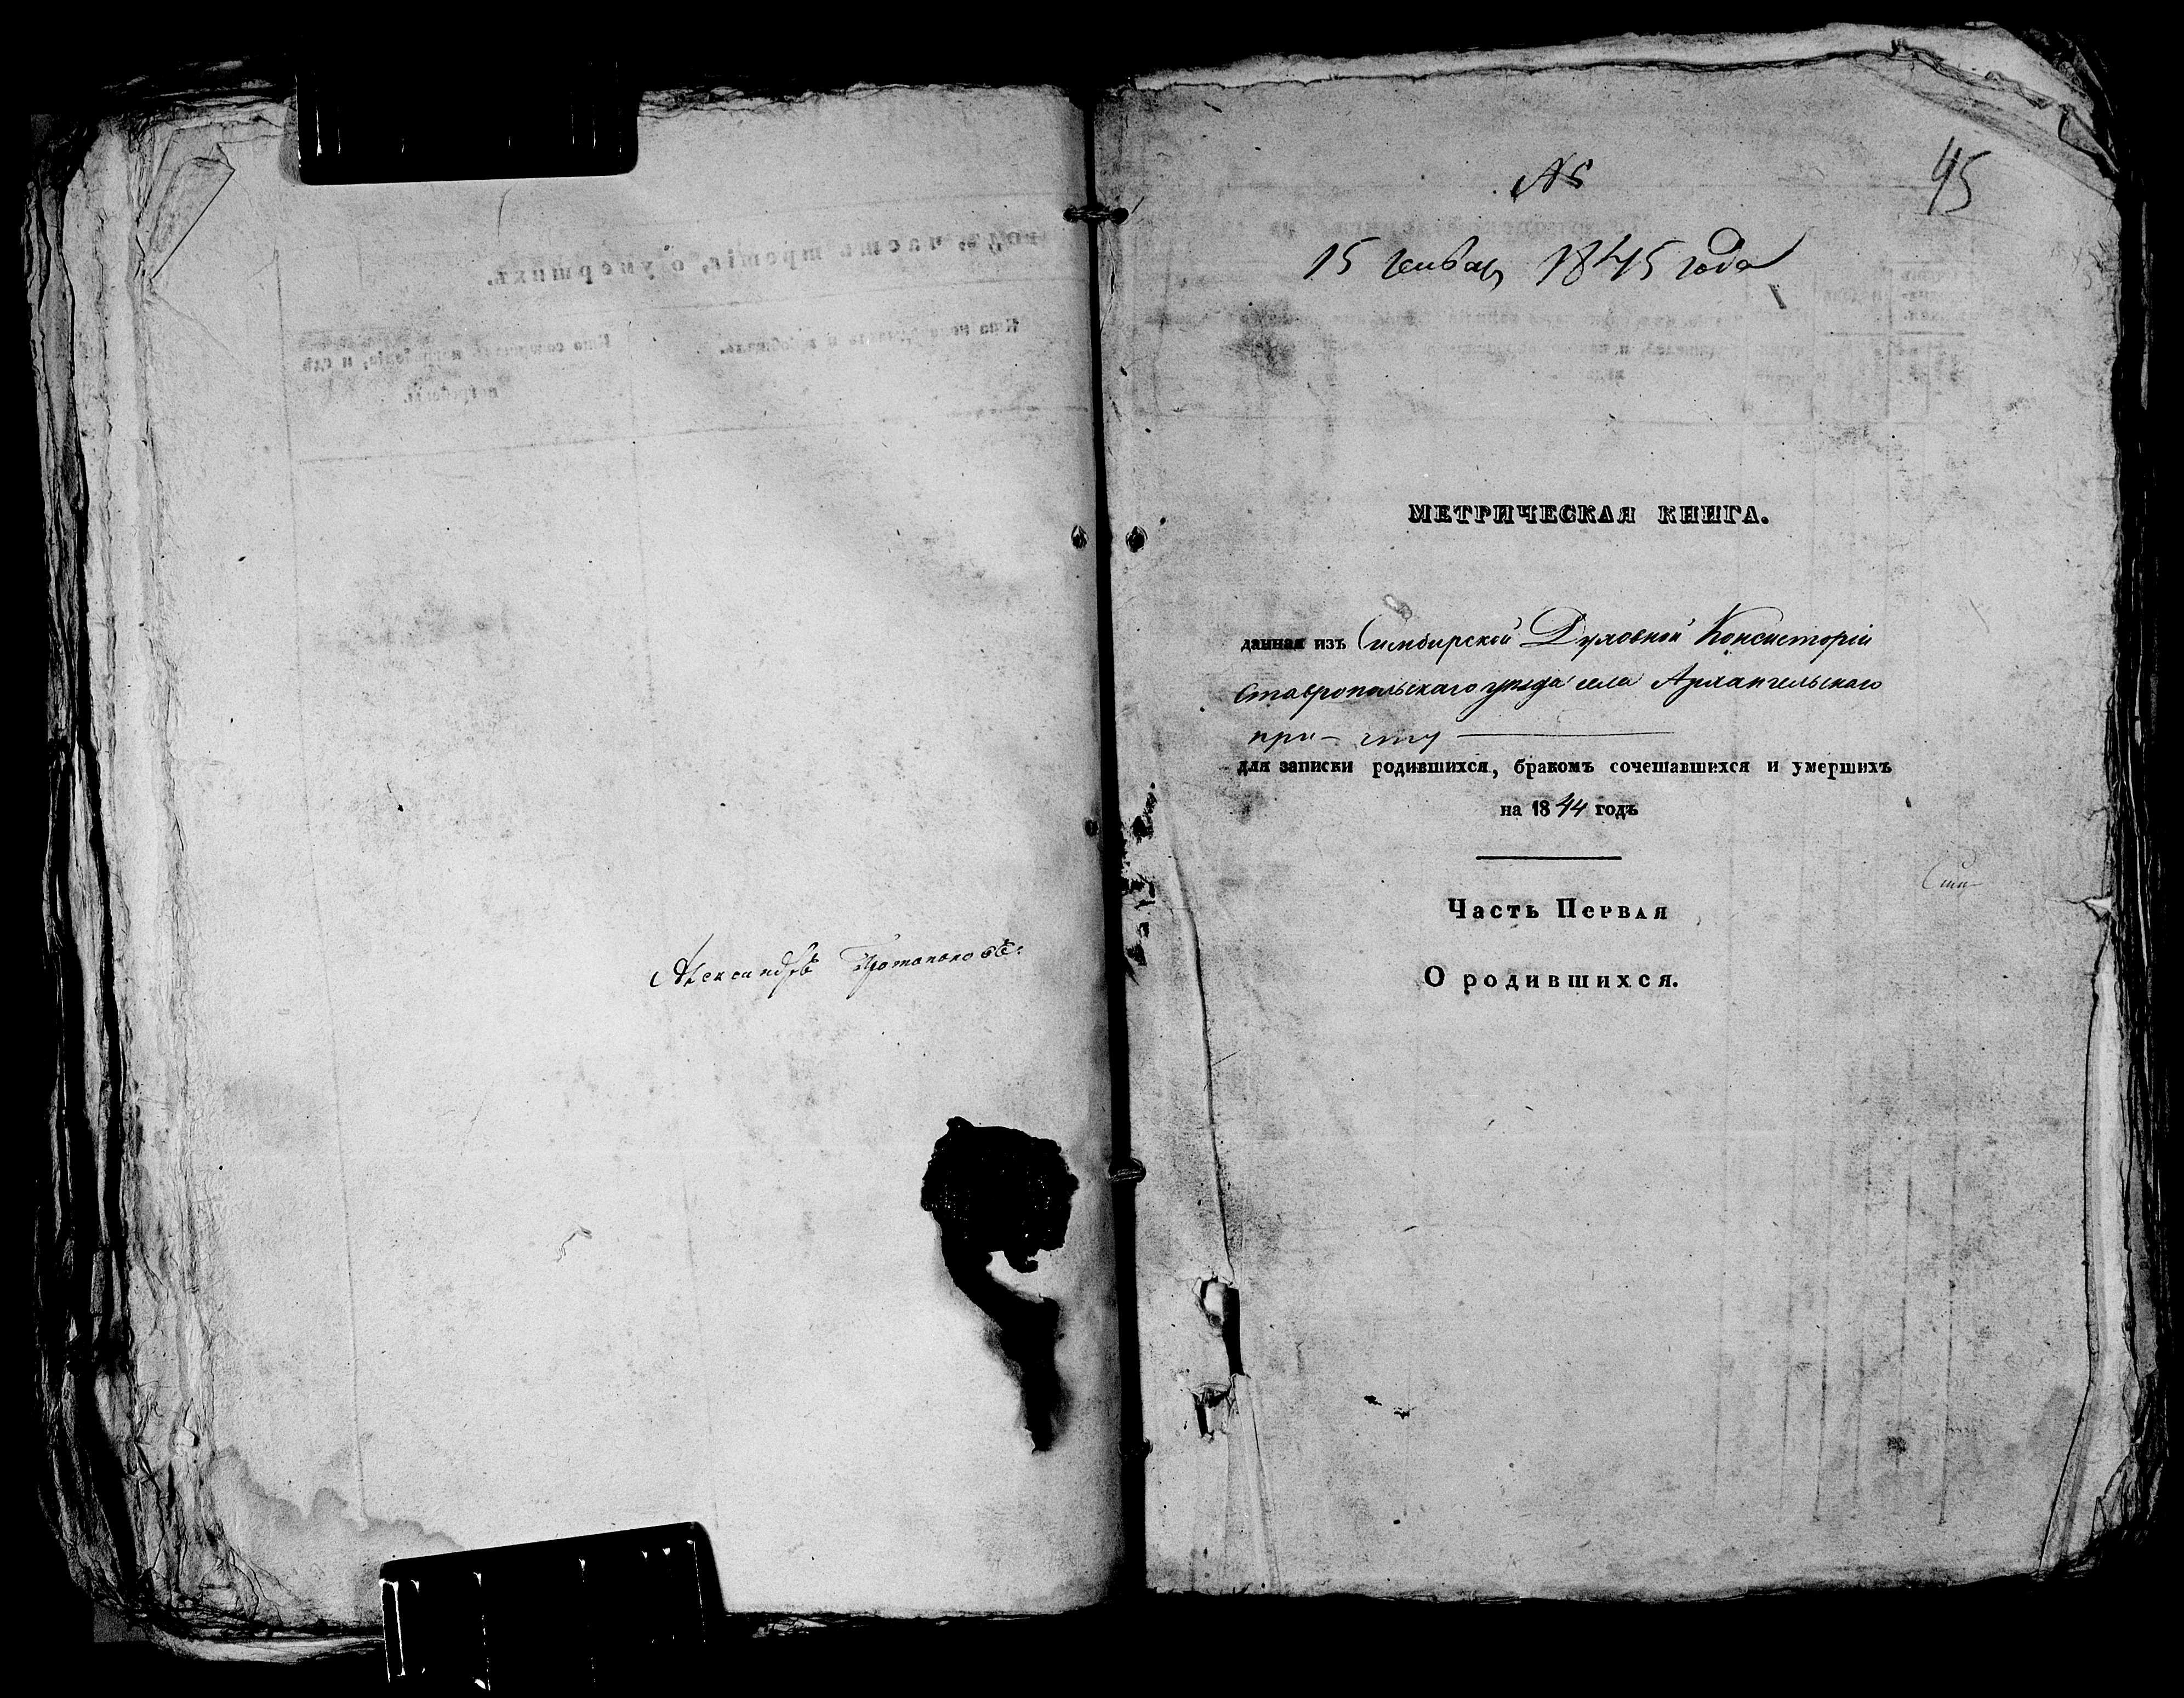 Александръ Протопоповъ.
№
45
15 Генваря 1845 года
МЕТРИЧЕСКАЯ КНИГА.
данная изъ Симбирской Духовной Консисторіи
Ставропольскаго уѣзда села Архангельскаго
при-чту
для записки родившихся, бракомъ сочетавшихся и умершихъ
на 1844 годъ
Часть Первая
О родившихся.